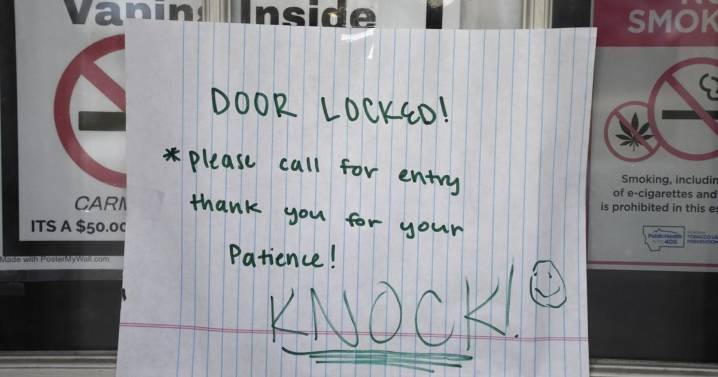 Vaping Inside
DOOR LOCKED!
* please call for entry
thank you for your
Patience!
KNOCK!
ITS A $50.00
Made with PosterMyWall.com
SMOK
Smoking, includin
of e-cigarettes and
is prohibited in this es